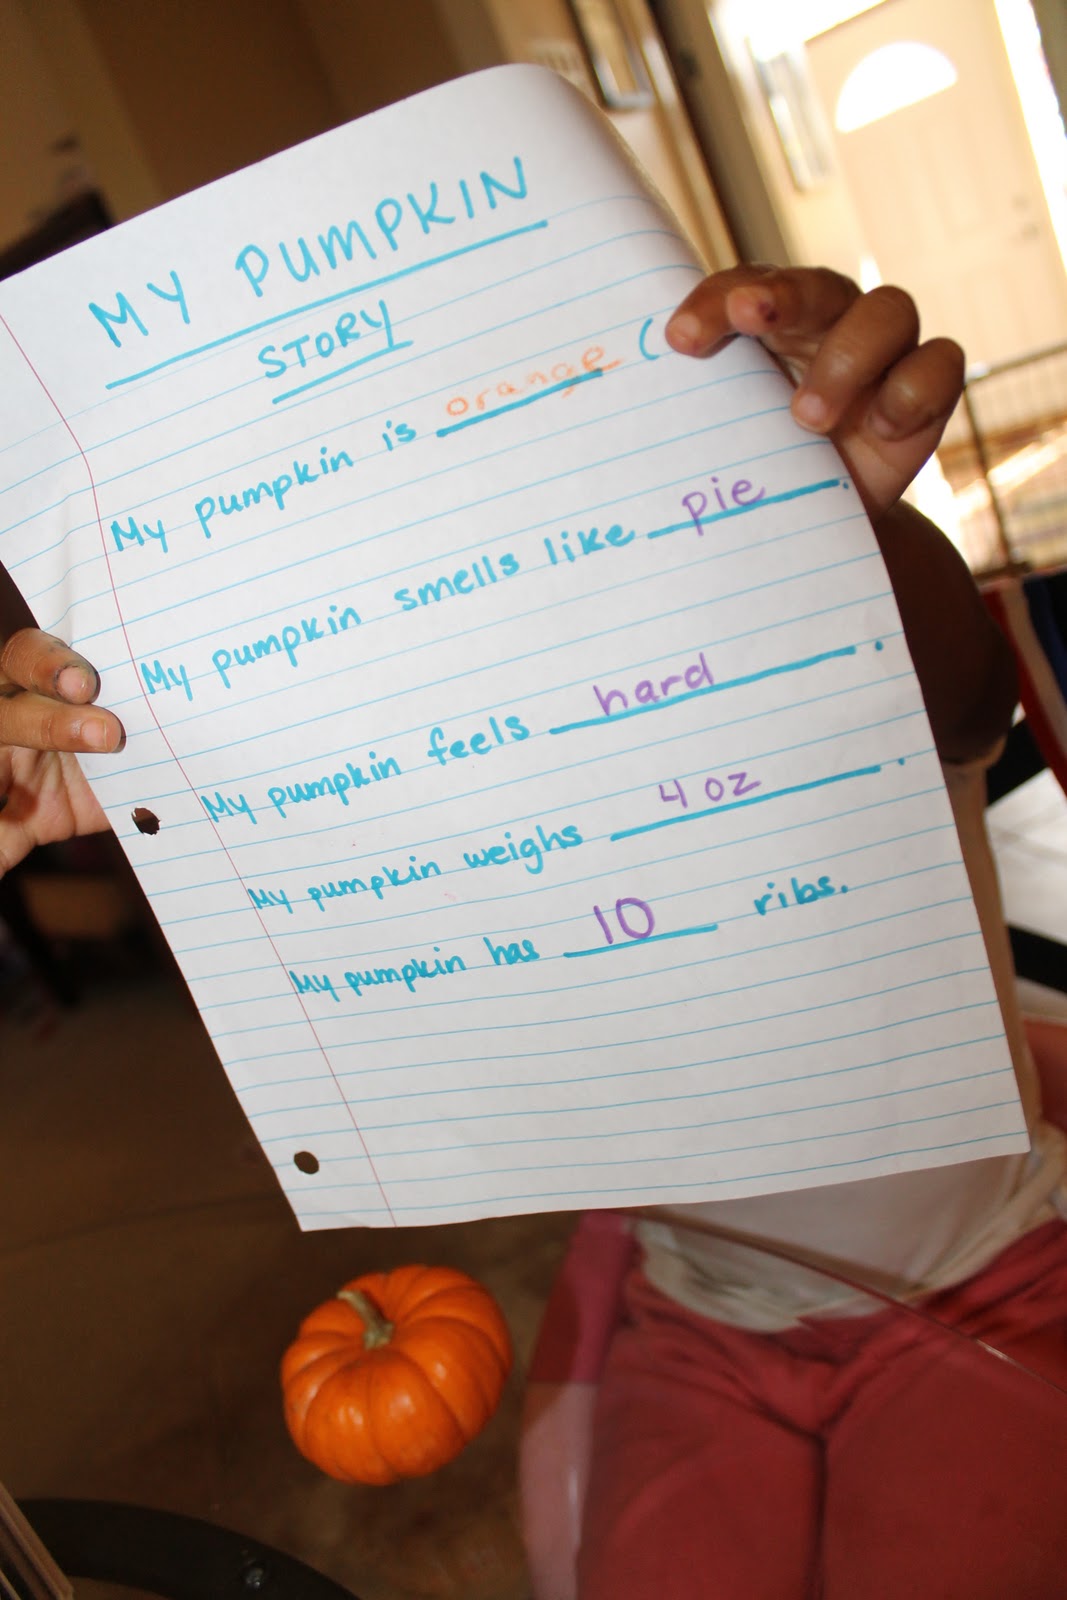 MY PUMPKIN
STORY
My pumpkin is orange (
My pumpkin smells like pie.
My pumpkin feels hard.
My pumpkin weighs 4 oz.
My pumpkin has 10 ribs.